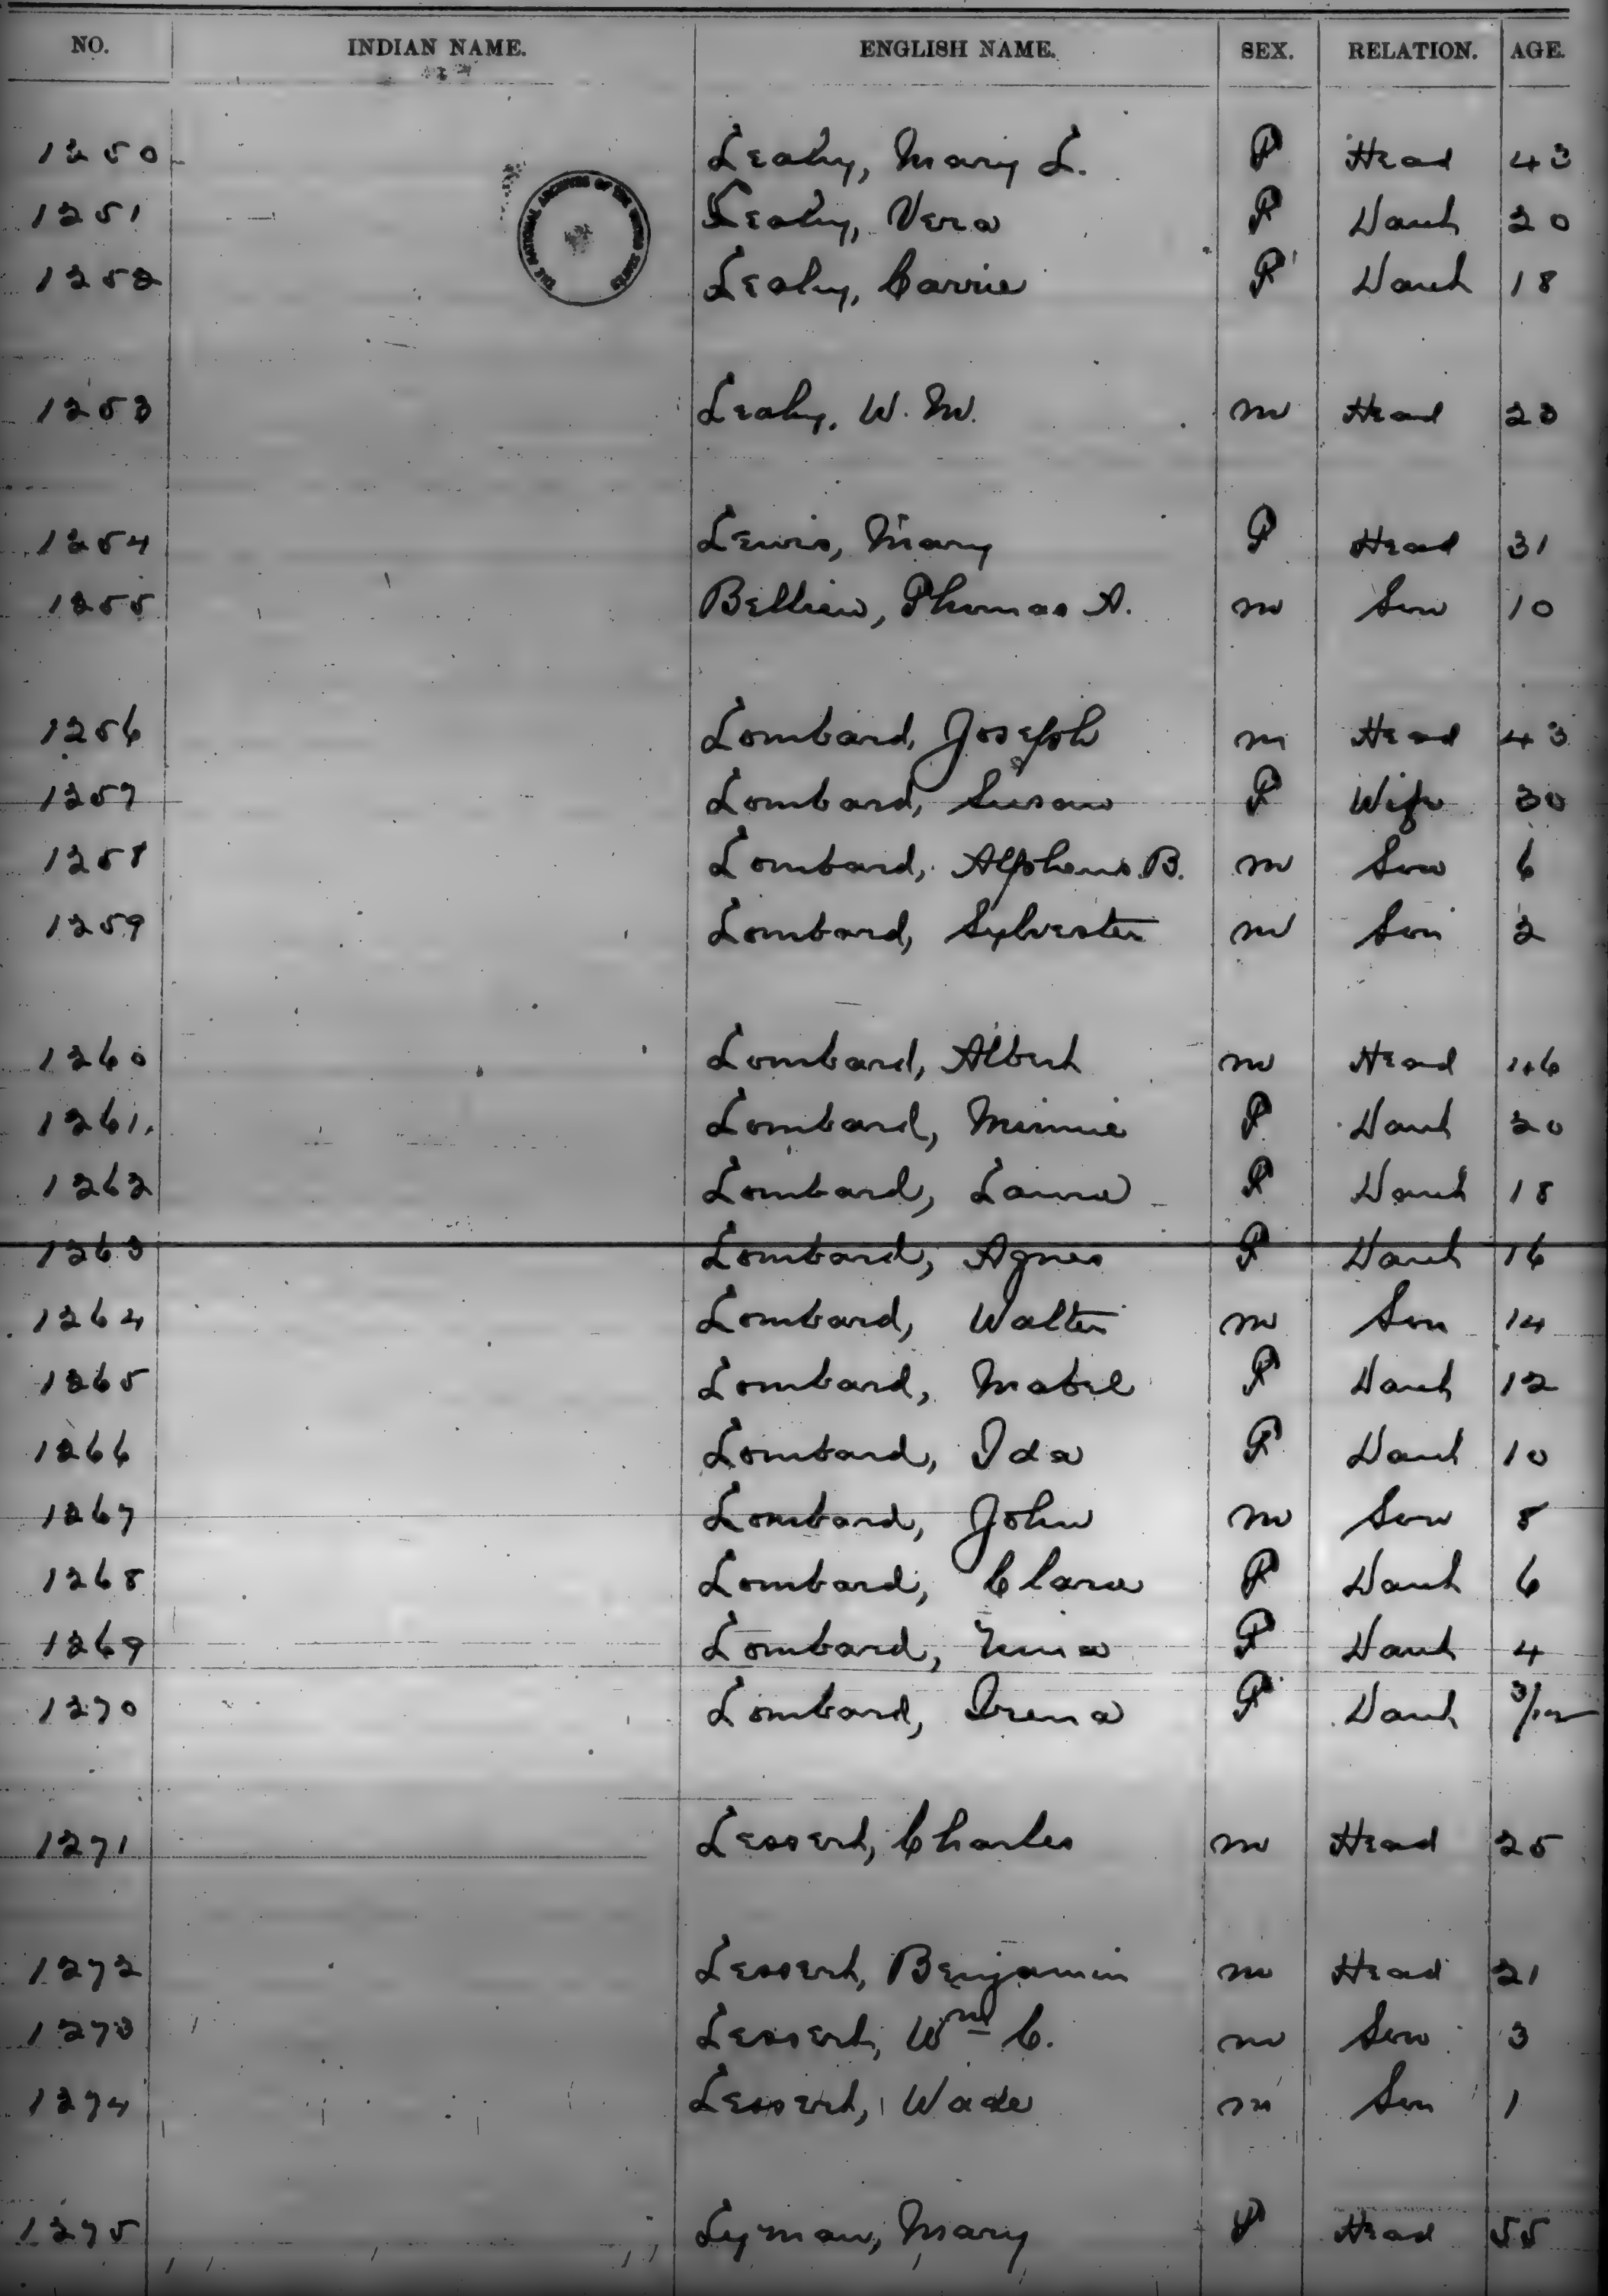 NO. INDIAN NAME. ENGLISH NAME. SEX. RELATION. AGE.
1250 Leahy, Mary L. F Head 43
THE NATIONAL ARCHIVES OF THE UNITED STATES
1251 Leahy, Vera F Dauh 20
1252 Leahy, Carrie F Dauh 18
1253 Leahy, W. M. M Head 23
1254 Lewis, Mary F Head 31
1255 Bellieu, Thomas A. M Son 10
1256 Lombard, Joseph M Head 43
1257 Lombard, Susan F Wife 30
1258 Lombard, Alpheus B. M Son 6
1259 Lombard, Sylvester M Son 2
1260 Lombard, Albert M Head 46
1261 Lombard, Minnie F Dauh 20
1262 Lombard, Laura F Dauh 18
1263 Lombard, Agnes F Dauh 16
1264 Lombard, Walter M Son 14
1265 Lombard, Mabel F Dauh 12
1266 Lombard, Ida F Dauh 10
1267 Lombard, John M Son 8
1268 Lombard, Clara F Dauh 6
1269 Lombard, F Dauh 4
1270 Lombard, Irena F Dauh 3/12
1271 Lessert, Charles M Head 25
1272 Lessert, Benjamin M Head 21
1273 Lessert, Wm C. M Son 3
1274 Lessert, Wade M Son 1
1275 Lyman, Mary F Head 55